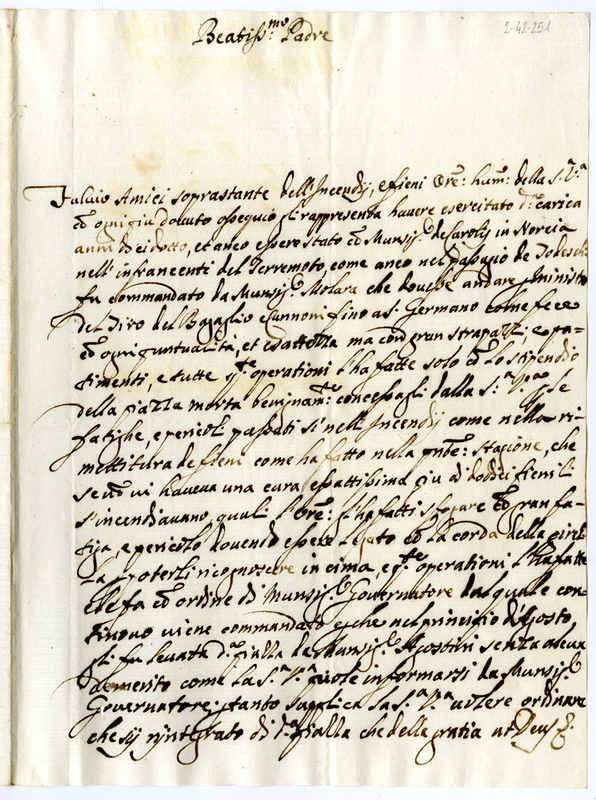 2-42-251
Beatiss.mo Padre
Fulvio Amici soprastante dell'Incendij, e fieni Ore: hum: della S.V.a
con ogni più dovuto ossequio gli rappresenta havere esercitato d.a carica
anni dieidotto, et anco essere stato con Munsig.e de Carolis in Norcia
nell'infrancenti del Terremoto, come anco nel passagio de Todeschi
fu commandato da Munsig.e Molara che dovesse andare ministro
del Tiro del Bagaglio e Cannoni fino a S. Germano come fece
con ogni puntualità, et esattezza ma con gran strapazzi, e pa-
timenti, e tutte q.te operationi l'ha fatte solo con lo stipendio
della piazza morta benignam.te concessagli dalla S.a V.a le
fatighe, e pericoli passati sì nell'Incendij come nella ri-
mettitura de fieni come ha fatto nella pnte: stagione, che
se non vi haveva una cura esattissima più di dodici fienili
s'incendiavano, quali l'Ore: l'ha fatti sfogare con gran fa-
tiga, e pericolo dovendo essere legato con la corda della
p poterli ricognoscere in cima, e q.te operationi l'ha fatte
e le fa con ordine di Munsig.e Governatore dal quale con-
tinuo viene commandato e che nel principio d'Agosto
gli fu levata d.a pialla da Munsig.e Agostini senza alcun
demerito come la S.a V.a puole informarsi da Munsig.e
Governatore; p tanto supplica la S.a V.a volere ordinare
che sij rintegrato di d.a pialla che della gratia ut Deus &.